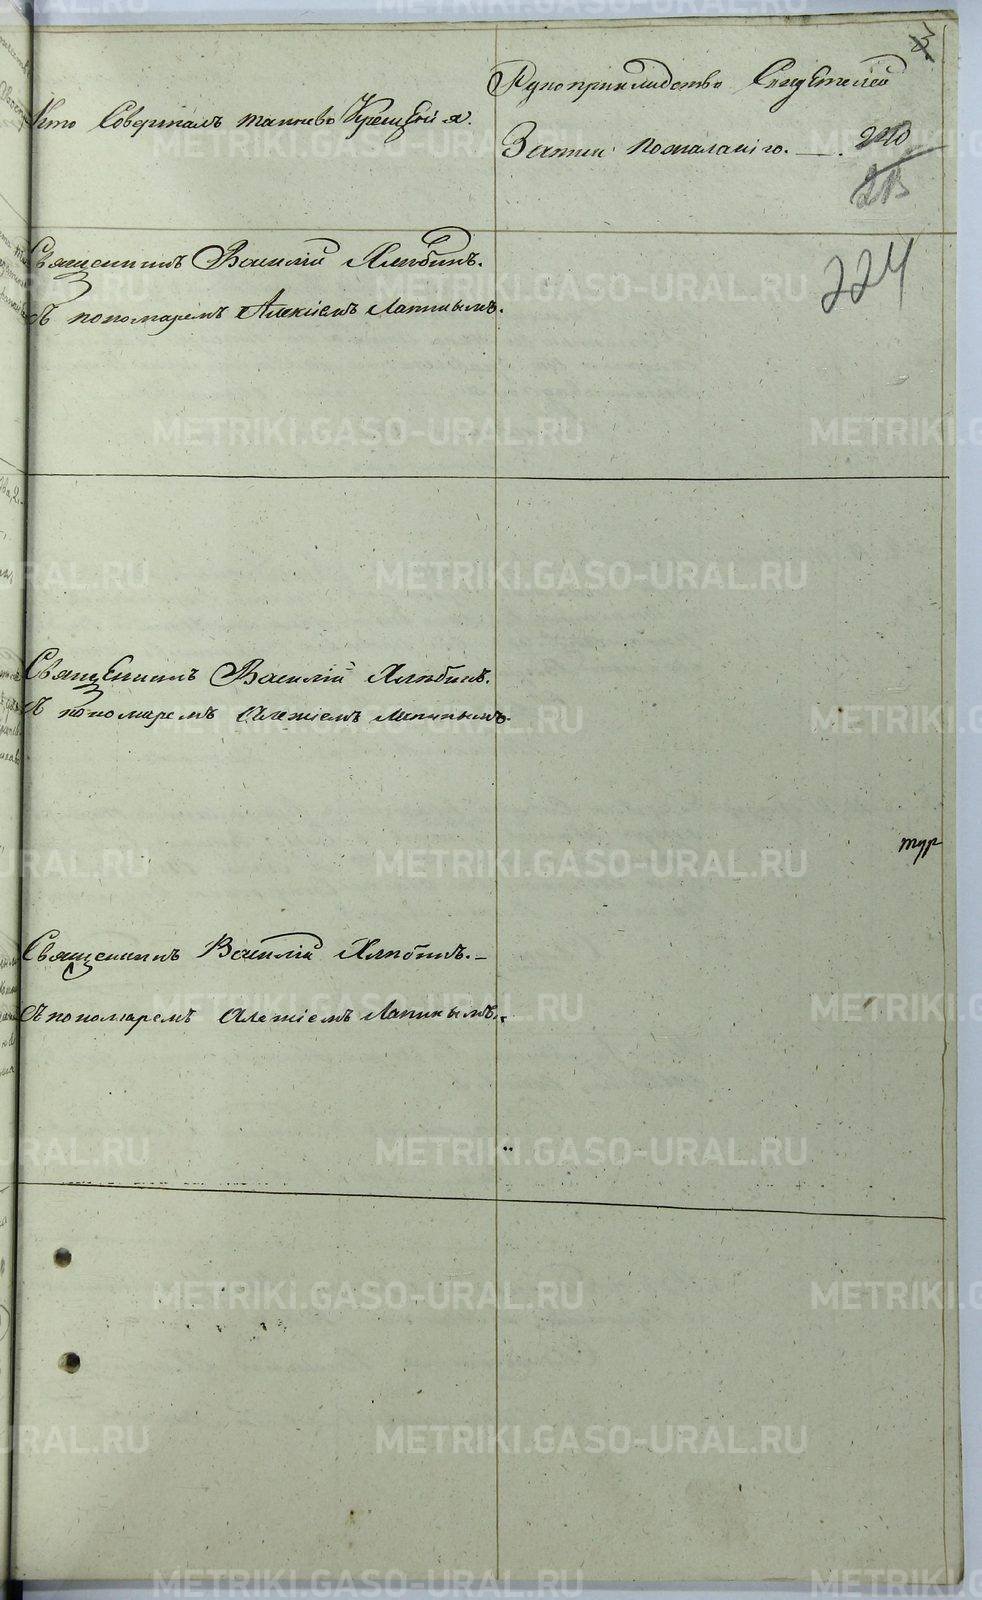 Кто Совершалъ таинство Крещенія.
Рукоприкладство Свидѣтелей
Записи пожеланію.
224
Священникъ Василій Хлѣбинъ.
Съ пономаремъ Алексіемъ Лапинымъ.
Священникъ Василій Хлѣбинъ.
Съ пономаремъ Алексіемъ Лапинымъ.
Священникъ Василій Хлѣбинъ.
Съ пономаремъ Алексіемъ Лапинымъ.
METRIKI.GASO-URAL.RU